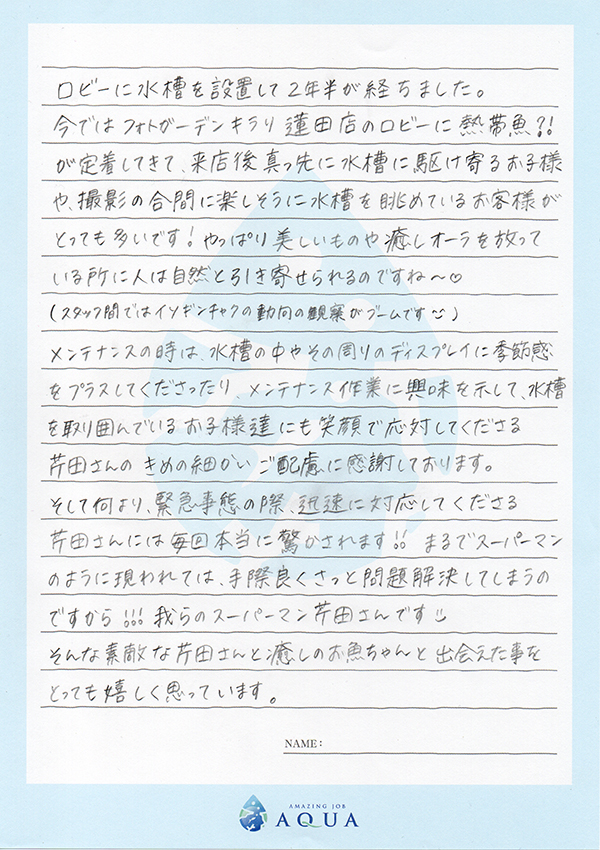 ロビーに水槽を設置して2年半が経ちました。
今ではフォトガーデンキラリ 蓮田店のロビーに熱帯魚?!
が定着してきて、来店後真っ先に水槽に駆け寄るお子様
や、撮影の合間に楽しそうに水槽を眺めているお客様が
とっても多いです!やっぱり美しいものや癒しオーラを放って
いる所に人は自然と引き寄せられるのですね〜♡
(スタッフ間ではイソギンチャクの動向の観察がブームです)
メンテナンスの時は、水槽の中やその周りのディスプレイに季節感
をプラスしてくださったり、メンテナンス作業に興味を示して、水槽
を取り囲んでいるお子様達にも笑顔で応対してくださる
芹田さんのきめの細かいご配慮に感謝しております。
そして何より、緊急事態の際、迅速に対応してくださる
芹田さんには毎回本当に驚かされます!! まるでスーパーマン
のように現われては、手際良くさっと問題解決してしまうの
ですから!!! 我らのスーパーマン芹田さんです
そんな素敵な芹田さんと癒しのお魚ちゃんと出会えた事を
とっても嬉しく思っています。
NAME:
AMAZING JOB
AQUA